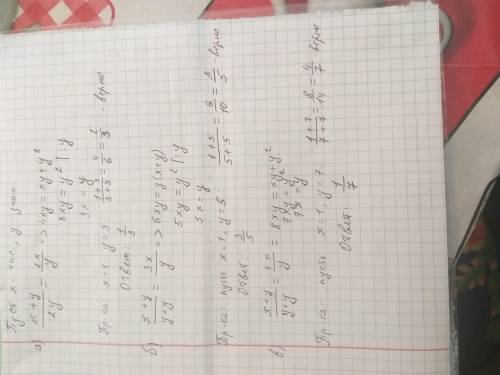 Пусть x - чис., y знам.
а) x+y/2y = 2x/y => 4xy = xy+y²
3xy = y² |:y
3x = y
Пр-ка x=1 y=3 1+3/3+3 = 4/6 = 2/3 - верно
Ответ: 1/3
б) x+y/y+y = 3x/y => 6xy = y(x+y)
5xy = y² |:y
5x = y
Пр-ка: пусть x=1, y=5 1+5/5+5 = 6/10 = 3/5 - верно
Ответ:
в) x+y/y+y = 4x/y = 8xy = xy+y²
7xy = y²
7x = y
Пр-ка: пусть x=1, y=7. 1+7/7+7 = 8/14 = 4/7 верно
Ответ: 1/7